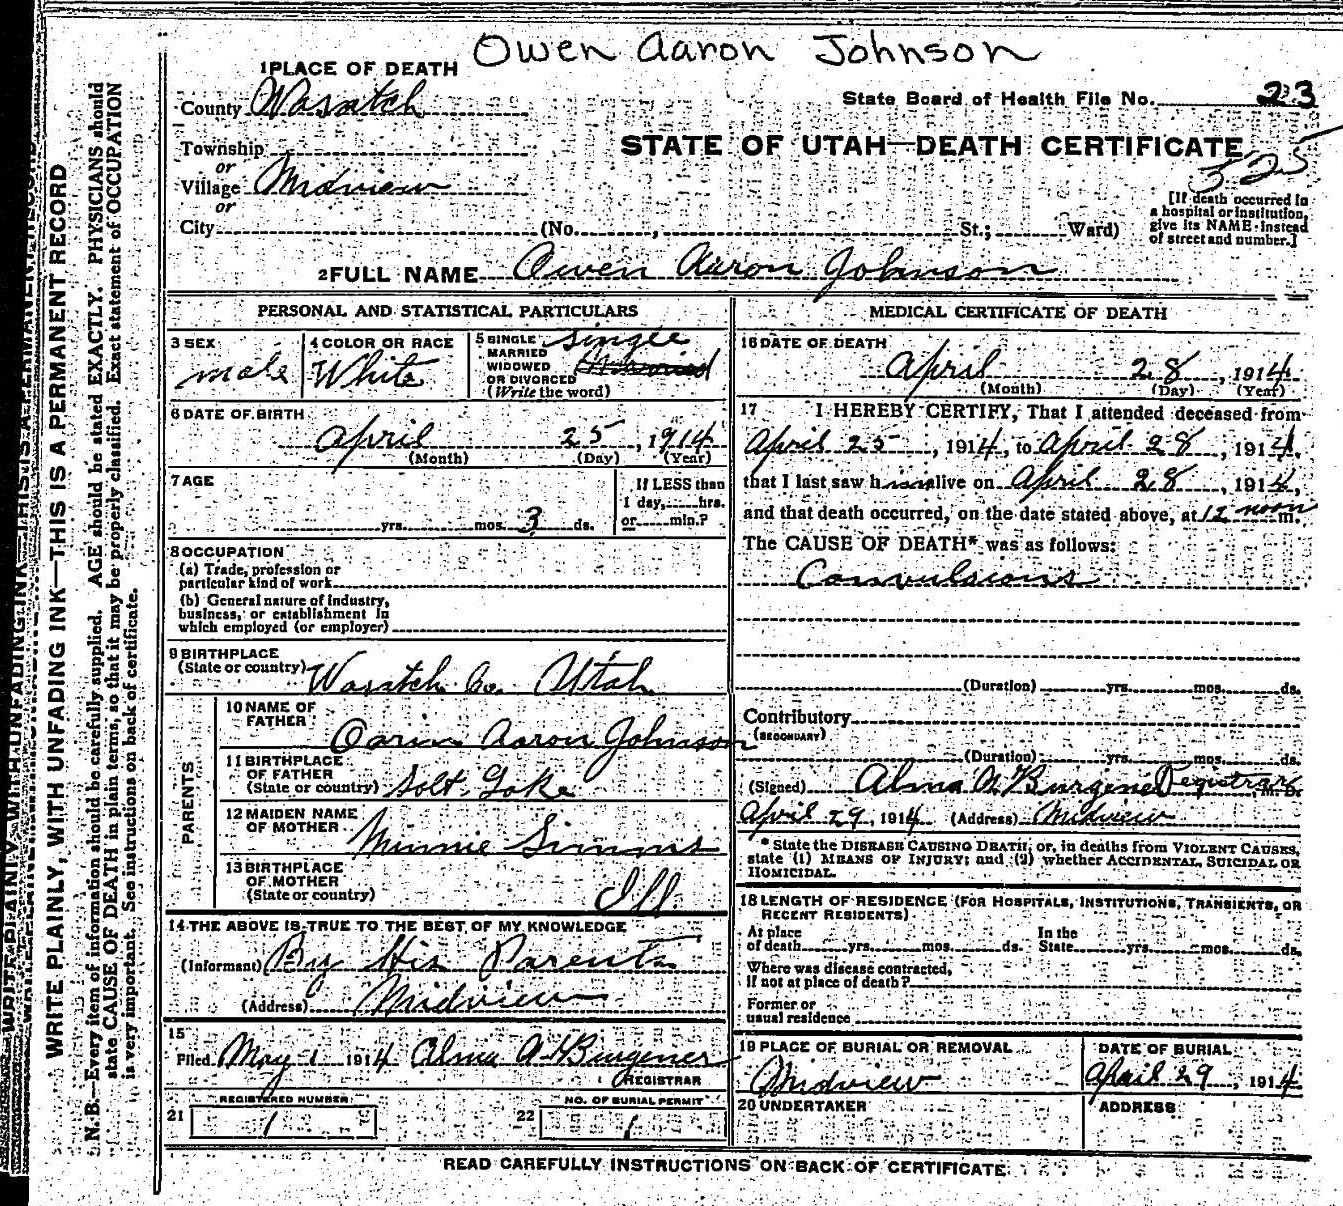 Owen Aaron Johnson
1 PLACE OF DEATH
County Wasatch
State Board of Health File No. 23
Township
STATE OF UTAH—DEATH CERTIFICATE
or
Village Midview
525
or
City (No. , St.; Ward)
[If death occurred in
a hospital or institution,
give its NAME instead
of street and number.]
2 FULL NAME Owen Aaron Johnson
PERSONAL AND STATISTICAL PARTICULARS
3 SEX
male
4 COLOR OR RACE
White
5 SINGLE
MARRIED
WIDOWED
OR DIVORCED
(Write the word)
Single
6 DATE OF BIRTH
April 25, 1914
(Month) (Day) (Year)
7 AGE
If LESS than
1 day, hrs.
or min.?
yrs. mos. 3 ds.
8 OCCUPATION
(a) Trade, profession or
particular kind of work
(b) General nature of industry,
business, or establishment in
which employed (or employer)
9 BIRTHPLACE
(State or country) Wasatch Co. Utah
PARENTS
10 NAME OF
FATHER
Aaron Johnson
11 BIRTHPLACE
OF FATHER
(State or country) Salt Lake
12 MAIDEN NAME
OF MOTHER
Minnie Simms
13 BIRTHPLACE
OF MOTHER
(State or country)
Ill
14 THE ABOVE IS TRUE TO THE BEST OF MY KNOWLEDGE
(Informant) By His Parents
(Address) Midview
15
Filed May 1 1914 Alma A Burgener
REGISTRAR
REGISTERED NUMBER
21 1
NO. OF BURIAL PERMIT
22 1
MEDICAL CERTIFICATE OF DEATH
16 DATE OF DEATH
April 28, 1914
(Month) (Day) (Year)
17 I HEREBY CERTIFY, That I attended deceased from
April 25, 1914, to April 28, 1914,
that I last saw him alive on April 28, 1914,
and that death occurred, on the date stated above, at 12 noon m.
The CAUSE OF DEATH* was as follows:
Convulsions
(Duration) yrs. mos. ds.
Contributory
(SECONDARY)
(Duration) yrs. mos. ds.
(Signed) Alma A Burgener Registrar M. D.
April 29, 1914 (Address) Midview
* State the DISEASE CAUSING DEATH; or, in deaths from VIOLENT CAUSES,
state (1) MEANS OF INJURY; and (2) whether ACCIDENTAL, SUICIDAL OR
HOMICIDAL.
18 LENGTH OF RESIDENCE (FOR HOSPITALS, INSTITUTIONS, TRANSIENTS, OR
RECENT RESIDENTS)
At place
of death yrs. mos. ds.
In the
State yrs. mos. ds.
Where was disease contracted,
If not at place of death?
Former or
usual residence
19 PLACE OF BURIAL OR REMOVAL
Midview
DATE OF BURIAL
April 29, 1914
20 UNDERTAKER
ADDRESS
READ CAREFULLY INSTRUCTIONS ON BACK OF CERTIFICATE
WRITE PLAINLY, WITH UNFADING INK—THIS IS A PERMANENT RECORD
N. B.—Every item of information should be carefully supplied. AGE should be stated EXACTLY. PHYSICIANS should
state CAUSE OF DEATH in plain terms, so that it may be properly classified. Exact statement of OCCUPATION
is very important. See instructions on back of certificate.